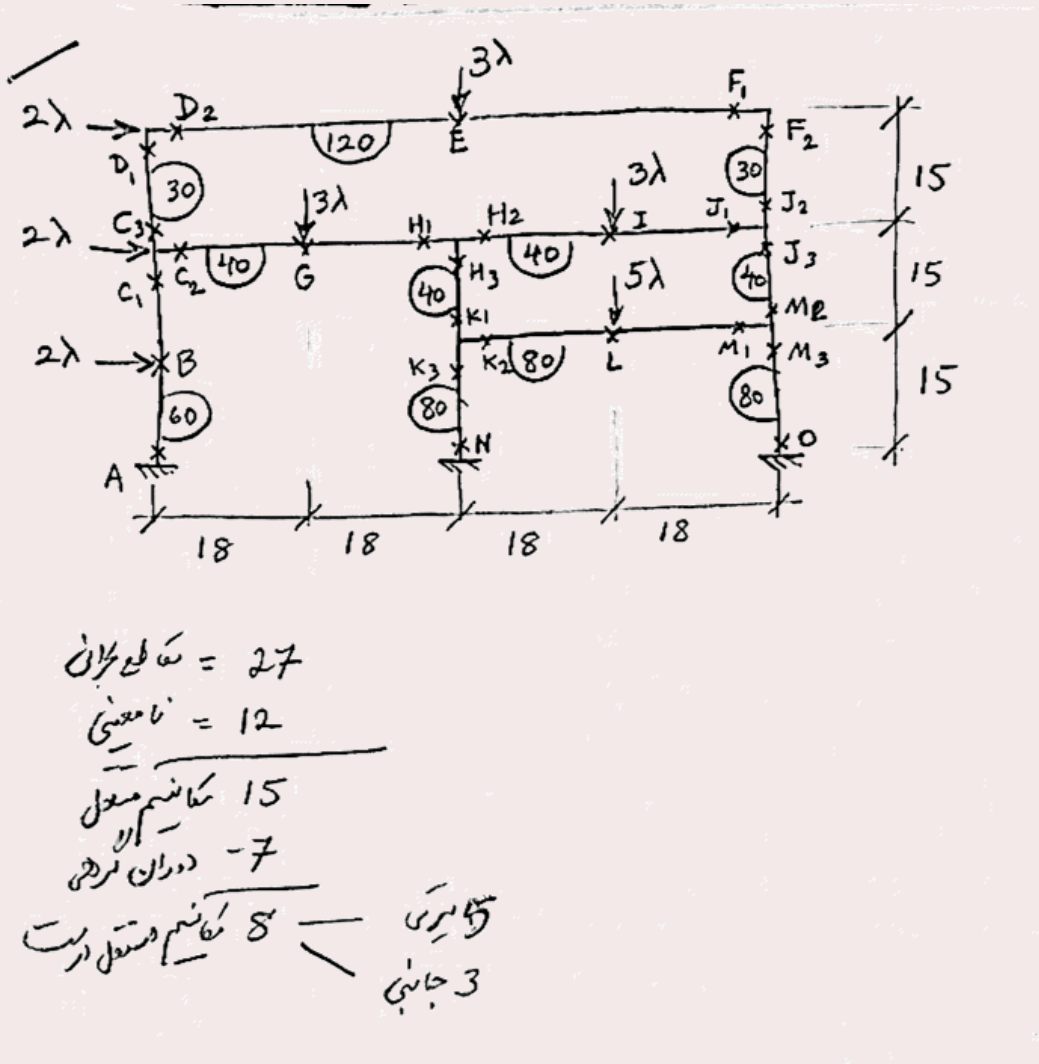 3λ
2λ D2 F1
D1 120 E F2
30 3λ 3λ 30 15
C3 H1 H2 I J1 J2
2λ
C1 C2 40 G H3 40 J3
40 5λ 40 15
K1 M2
2λ B K3 K2 80 L M1 M3
60 80 80 15
A N O
18 18 18 18
مقاطع بحرانی = 27
نامعینی = 12
15 مکانیسم مستقل
-7 دوران گرهی
8 مکانیسم مستقل درست
5 تیری
3 جانبی